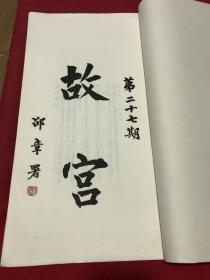 第二十七期
故宫
邵章署